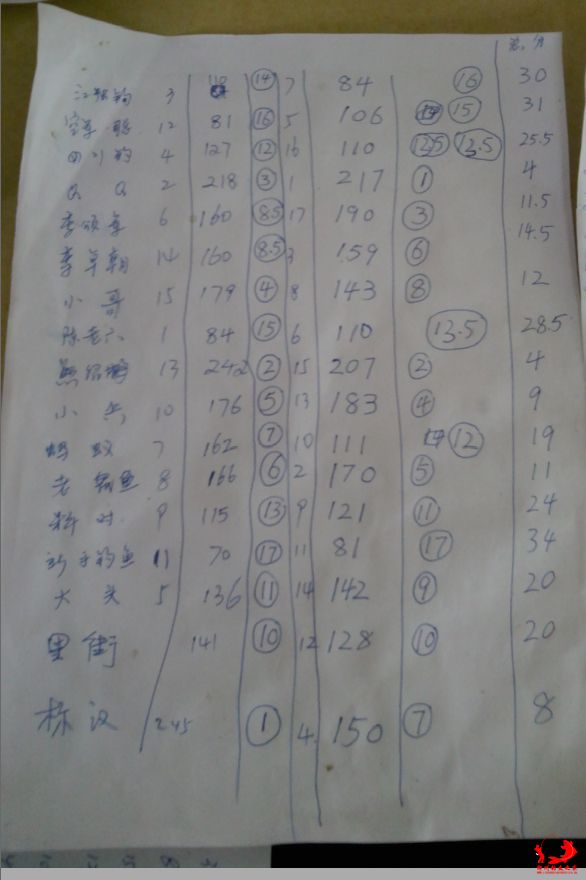 总分
3 ⑭ 7 84 ⑯ 30
12 81 ⑯ 5 106 ⑮ 31
4 127 ⑫ 16 110 12.5 12.5 25.5
Q Q 2 218 ③ 1 217 ① 4
6 160 8.5 17 190 ③ 11.5
14 160 8.5 3 159 ⑥ 14.5
小哥 15 179 ④ 8 143 ⑧ 12
陈老六 1 84 ⑮ 6 110 13.5 28.5
13 242 ② 15 207 ② 4
小兵 10 176 ⑤ 13 183 ④ 9
蚂蚁 7 162 ⑦ 10 111 ⑫ 19
老 鱼 8 166 ⑥ 2 170 ⑤ 11
9 115 ⑬ 9 121 ⑪ 24
新手钓鱼 11 70 ⑰ 11 81 ⑰ 34
大头 5 136 ⑪ 14 142 ⑨ 20
里街 141 ⑩ 12 128 ⑩ 20
标汉 245 ① 4 150 ⑦ 8